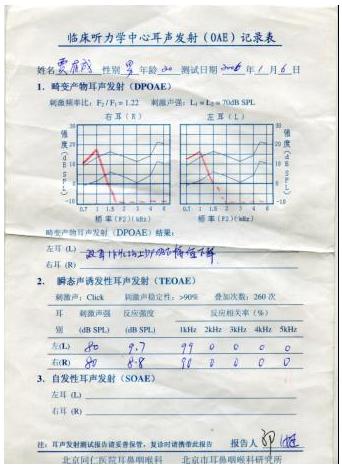 临床听力学中心耳声发射（OAE）记录表
姓名 性别 男 年龄 20 测试日期 2006 年 1 月 6 日
1. 畸变产物耳声发射（DPOAE）
刺激频率比：F₂/F₁=1.22 刺激声强：L₁=L₂=70dB SPL
右耳（R） 左耳（L）
强度(dB SPL) 30 20 10 0 -10 30 20 10 0 -10 强度(dB SPL)
0.7 1 1.5 2 3 4 6 0.7 1 1.5 2 3 4 6
频率(F2)(kHz) 频率(F2)(kHz)
畸变产物耳声发射（DPOAE）结果：
左耳 (L) 双耳 1kHz 以上
右耳 (R)
2. 瞬态声诱发性耳声发射（TEOAE）
刺激声：Click 刺激声稳定性：>90% 叠加次数：260 次
耳 刺激声强 反应强度 反应相关率（%）
别 (dB SPL) (dB SPL) 1kHz 2kHz 3kHz 4kHz 5kHz
左(L) 80 9.7 99 0 0 0 0
右(R) 80 8.8 98 0 0 0 0
3. 自发性耳声发射（SOAE）
左耳 (L)
右耳 (R)
注：耳声发射测试报告请妥善保管，复诊时请携带此报告 报告人
北京同仁医院耳鼻咽喉科 北京市耳鼻咽喉科研究所